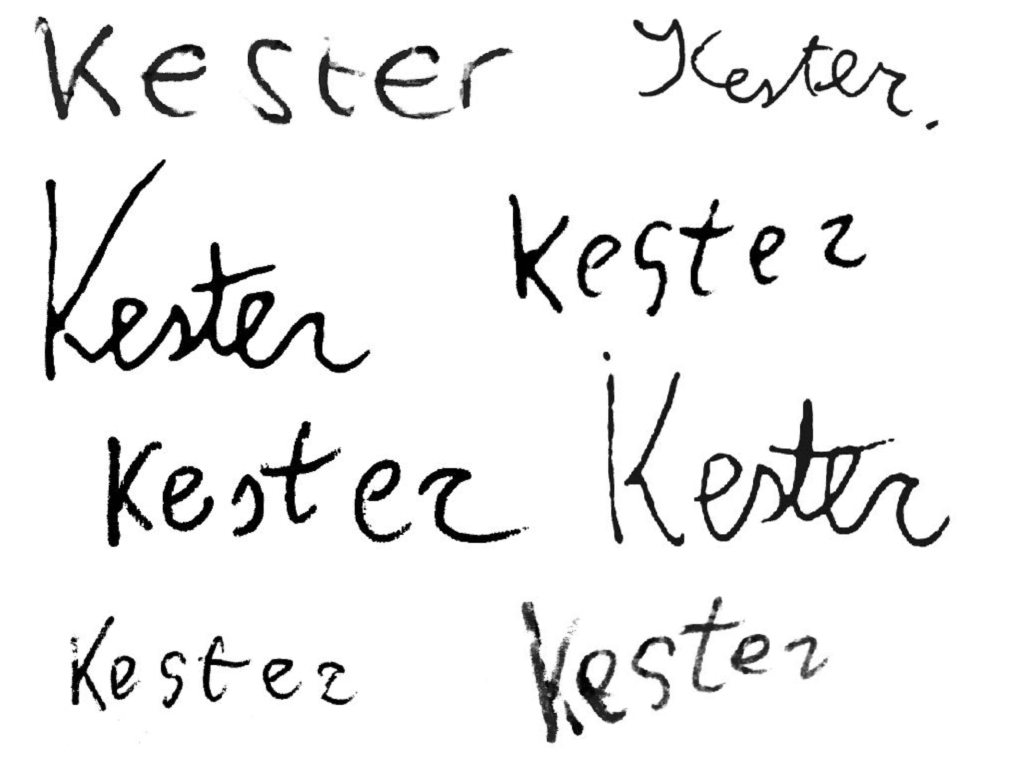 Kester Kester.
Kester Kester
Kester Kester
Kester Kester